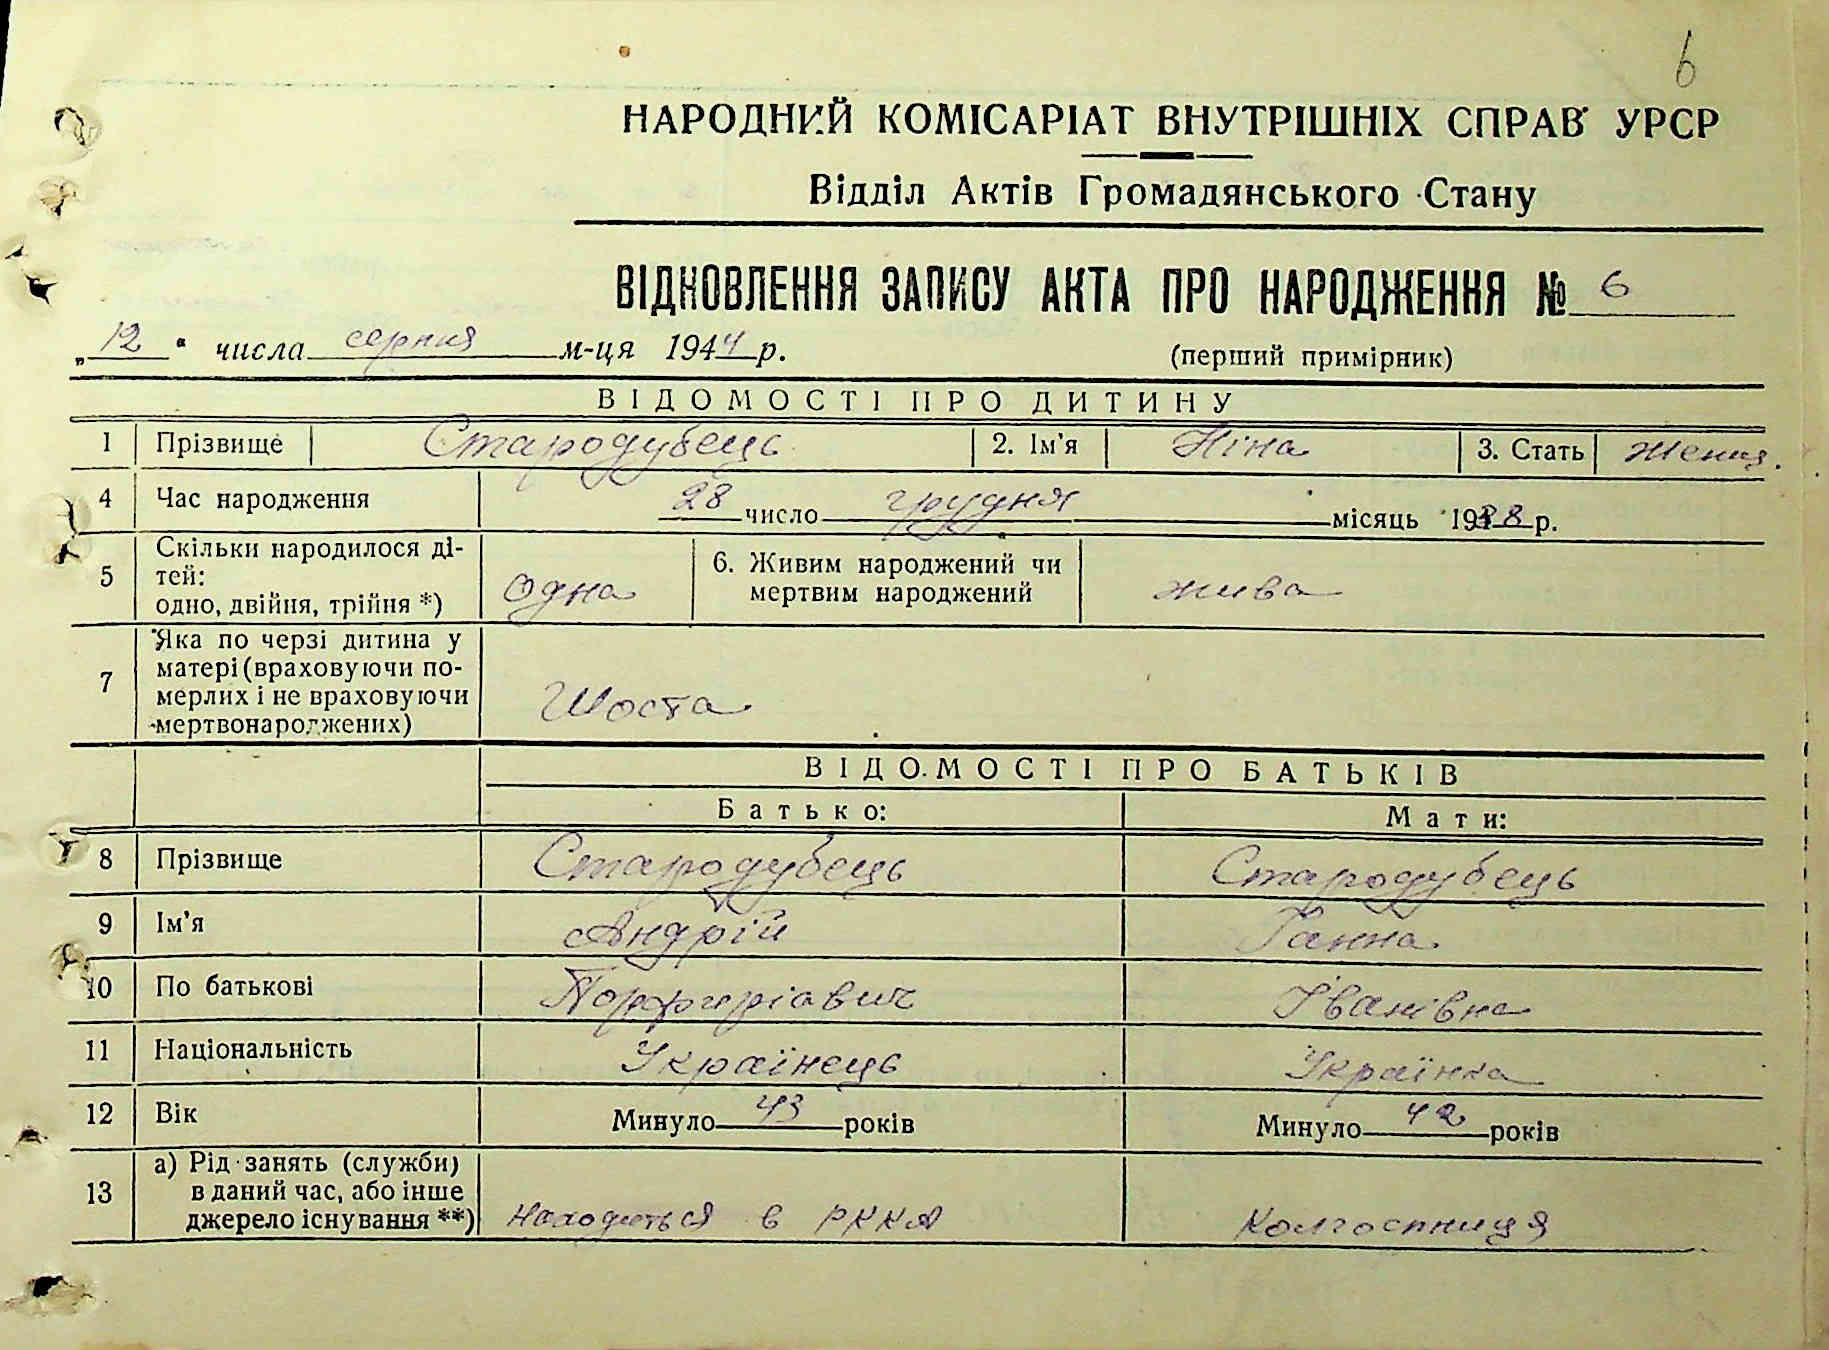 6
НАРОДНИЙ КОМІСАРІАТ ВНУТРІШНІХ СПРАВ УРСР
Відділ Актів Громадянського Стану
ВІДНОВЛЕННЯ ЗАПИСУ АКТА ПРО НАРОДЖЕННЯ № 6
„12“ числа серпня м-ця 1944 р.
(перший примірник)
ВІДОМОСТІ ПРО ДИТИНУ
1 Прізвище Стародубець 2. Ім'я Ніна 3. Стать
4 Час народження 28 число грудня місяць 1938 р.
5 Скільки народилося ді-
тей:
одно, двійня, трійня *) Одна
6. Живим народжений чи
мертвим народжений жива
7 Яка по черзі дитина у
матері (враховуючи по-
мерлих і не враховуючи
мертвонароджених) Шоста
ВІДОМОСТІ ПРО БАТЬКІВ
Батько: Мати:
8 Прізвище Стародубець Стародубець
9 Ім'я Андрій Ганна
10 По батькові Порфиріавич Іванівна
11 Національність Українець Українка
12 Вік Минуло 43 років Минуло 42 років
13 а) Рід занять (служби)
в даний час, або інше
джерело існування **) Находиться в РККА Колгоспниця